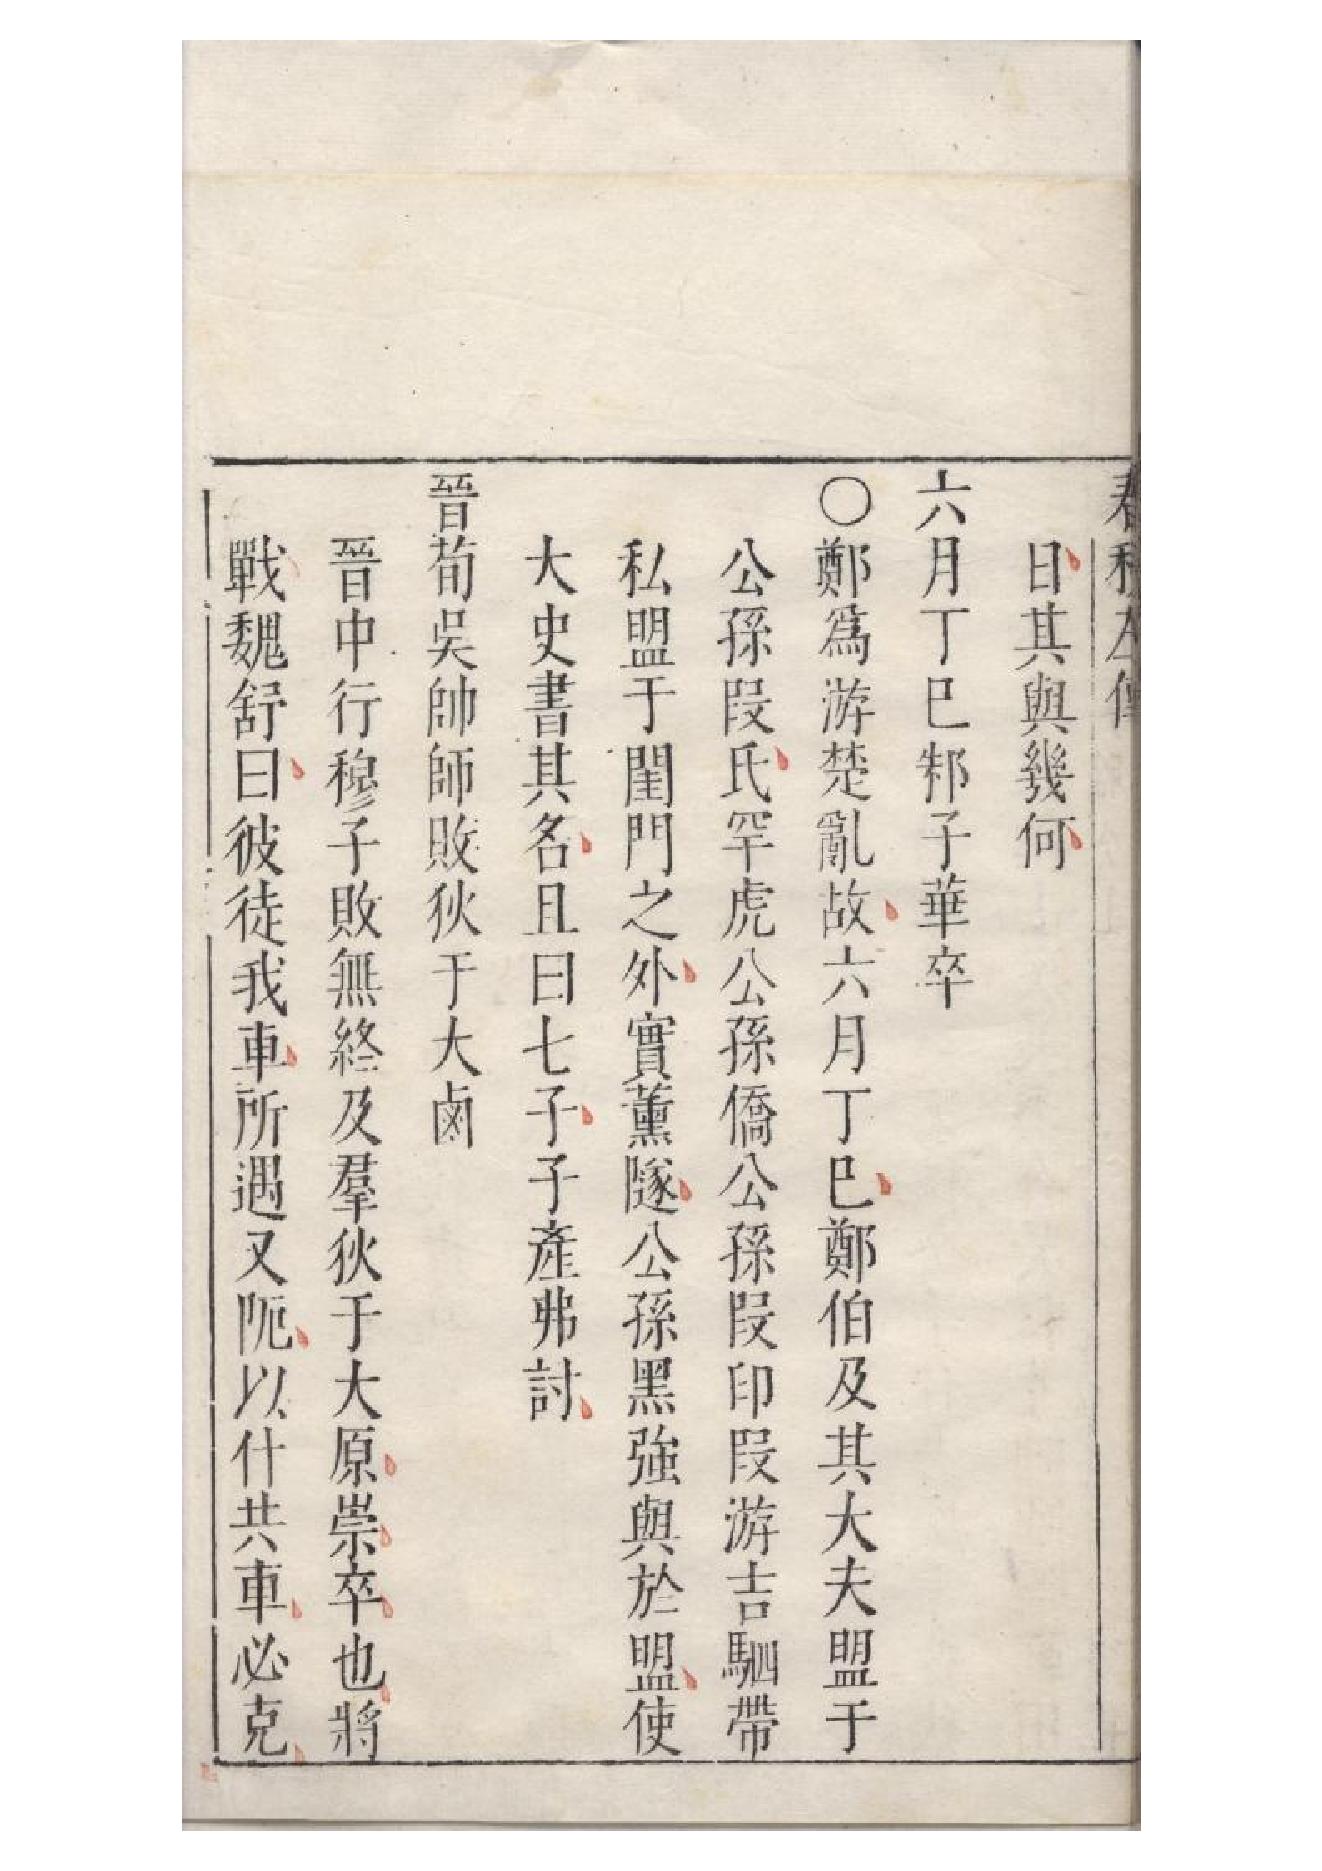 春秋左傳
日其與幾何
六月丁巳邾子華卒
〇鄭爲游楚亂故六月丁巳鄭伯及其大夫盟于
公孫段氏罕虎公孫僑公孫段印段游吉駟帶
私盟于閨門之外實薰隧公孫黑強與於盟使
大史書其名且曰七子子產弗討
晉荀吳帥師敗狄于大鹵
晉中行穆子敗無終及羣狄于大原崇卒也將
戰魏舒曰彼徒我車所遇又阨以什共車必克